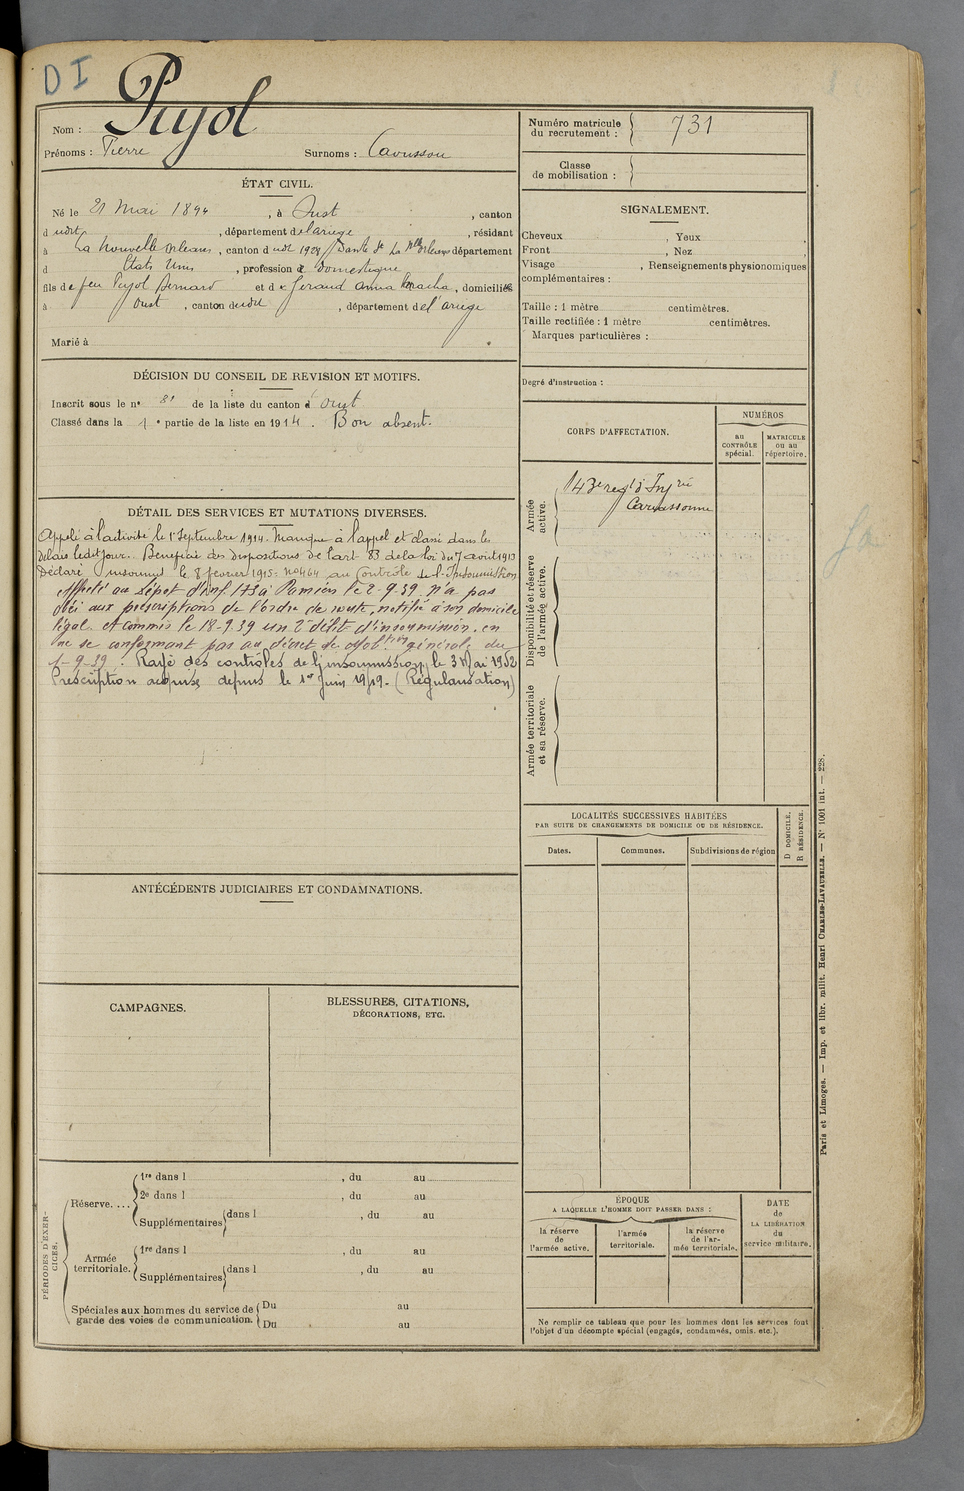 D I
Pujol
Nom :
Prénoms : Pierre Surnoms : Caousson
ÉTAT CIVIL.
Né le 21 Mai 1894, à Oust, canton
dudit, département de l'ariège, résidant
à La Nouvelle Orléans, canton dudt 1929 Danté St La Nlle Orléans département
d États Unis, profession de Domestique
fils de feu Pujol Bernard et de Geraud Anna, domiciliés
à Oust, canton dudit, département de l'ariège
Marié à
DÉCISION DU CONSEIL DE REVISION ET MOTIFS.
Inscrit sous le no 81 de la liste du canton d'Oust
Classé dans la 1e partie de la liste en 1914. Bon absent.
DÉTAIL DES SERVICES ET MUTATIONS DIVERSES.
Appelé à l'activité le 1er Septembre 1914. Manque à l'appel et classé dans les
Délais ledit jour. Bénéficie des dispositions de l'art 83 de la loi du 7 août 1913
Déclaré insoumis le 8 février 1915: no 464 au Contrôle de l'Insoumission
Appelé au Dépôt d'Inf. 173 à Pamiers le 2-9-39 n'a pas
obéi aux prescriptions de l'ordre de route, notifié à son domicile
légal. A commis le 18-9-39 un 2e délit d'insoumission. en
ne se conformant pas au décret de Mobtion générale du
1-9-39. Rayé des contrôles de l'insoumission, le 3 Mai 1952
Prescription acquise depuis le 1er Juin 1949. (Régularisation)
ANTÉCÉDENTS JUDICIAIRES ET CONDAMNATIONS.
CAMPAGNES.
BLESSURES, CITATIONS,
DÉCORATIONS, ETC.
PÉRIODES D'EXERCICES.
Réserve....
1re dans l , du au
2e dans l , du au
Supplémentaires dans l , du au
Armée territoriale.
1re dans l , du au
Supplémentaires dans l , du au
Spéciales aux hommes du service de garde des voies de communication.
Du au
Du au
Numéro matricule du recrutement : 731
Classe de mobilisation :
SIGNALEMENT.
Cheveux , Yeux ,
Front , Nez ,
Visage , Renseignements physionomiques
complémentaires :
Taille : 1 mètre centimètres.
Taille rectifiée : 1 mètre centimètres.
Marques particulières :
Degré d'instruction :
CORPS D'AFFECTATION.
NUMÉROS
au CONTRÔLE spécial.
MATRICULE ou au répertoire.
Armée active.
143e regt d'Infrie
Carcassonne
Disponibilité et réserve de l'armée active.
Armée territoriale et sa réserve.
LOCALITÉS SUCCESSIVES HABITÉES
PAR SUITE DE CHANGEMENTS DE DOMICILE OU DE RÉSIDENCE.
Dates. Communes. Subdivisions de région
D DOMICILE.
R RÉSIDENCE.
ÉPOQUE
A LAQUELLE L'HOMME DOIT PASSER DANS :
la réserve de l'armée active.
l'armée territoriale.
la réserve de l'armée territoriale.
DATE de LA LIBÉRATION du service militaire.
Ne remplir ce tableau que pour les hommes dont les services font
l'objet d'un décompte spécial (engagés, condamnés, omis, etc.).
Paris et Limoges. — Imp. et libr. milit. Henri CHARLES-LAVAUZELLE. — No 1001 int. — 228.